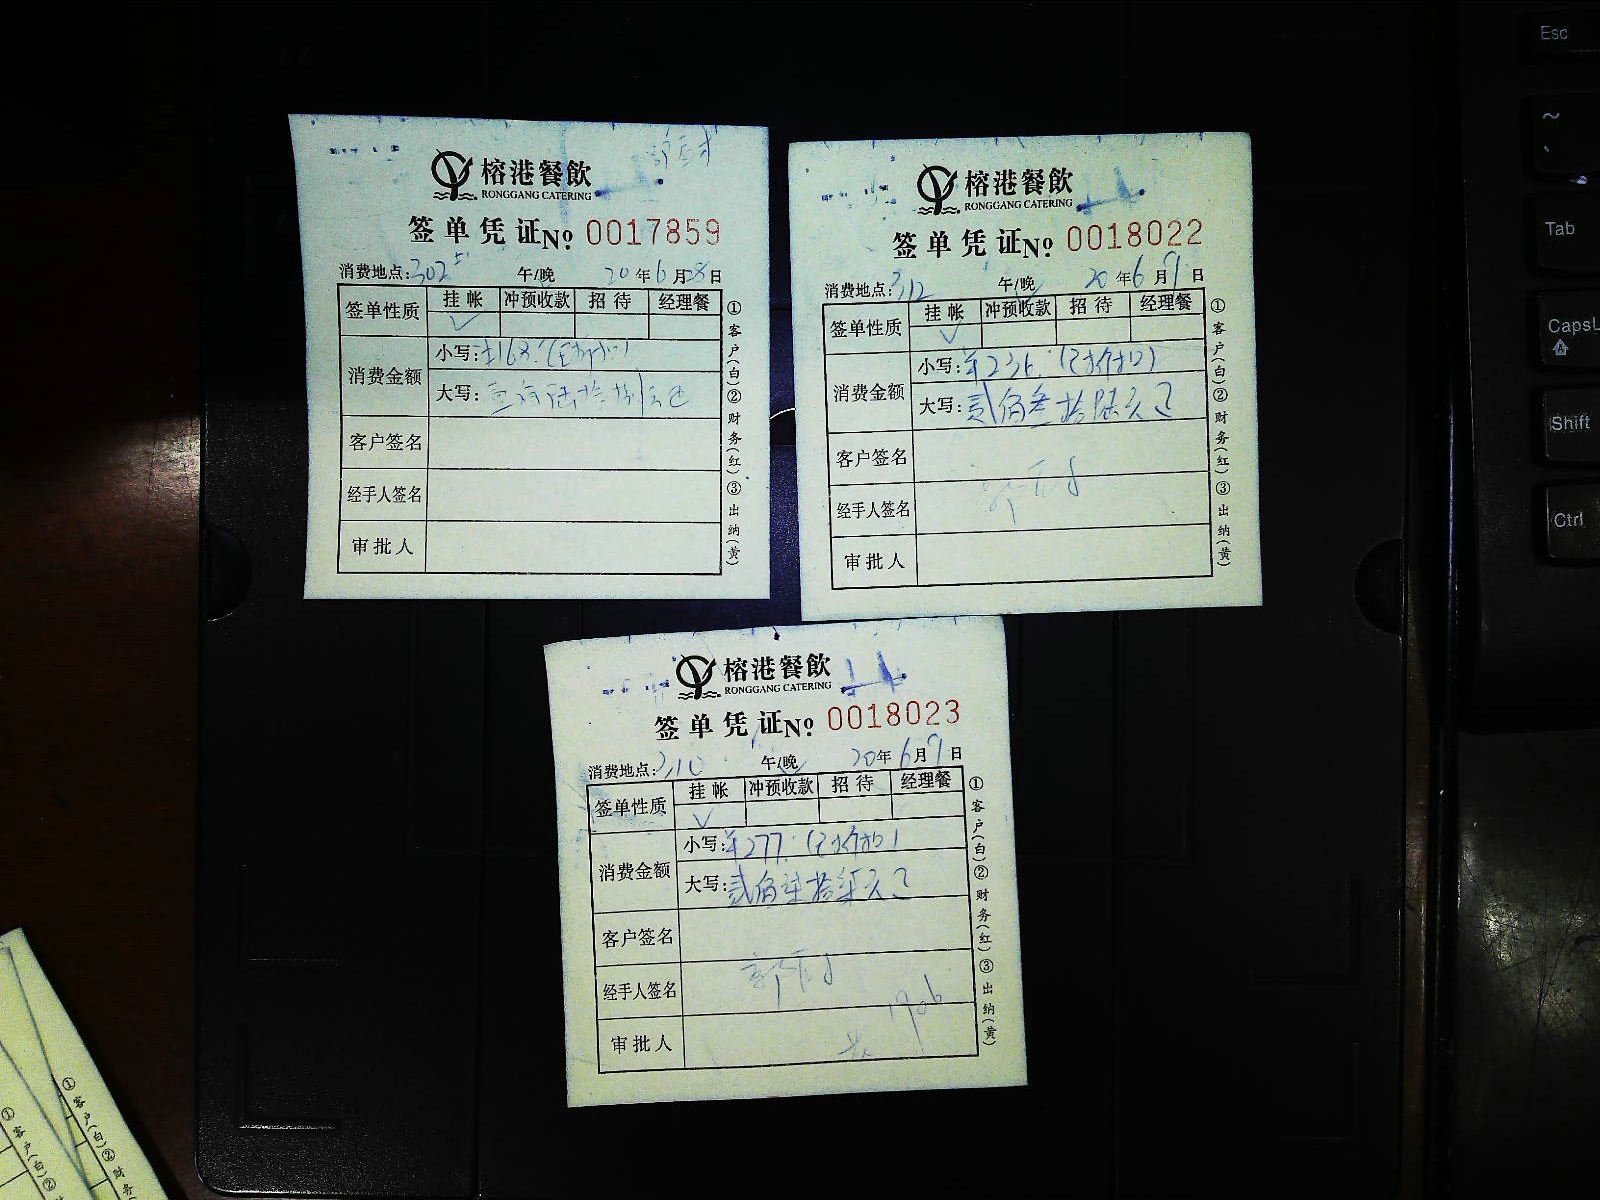 榕港餐飲
RONGGANG CATERING
签单凭证No 0017859
消费地点:302 午/晚 20年6月8日
签单性质 挂帐 冲预收款 招待 经理餐
消费金额 小写:¥168.
大写:壹佰陆拾捌元正
客户签名
经手人签名
审批人
①客户(白)②财务(红)③出纳(黄)
榕港餐飲
RONGGANG CATERING
签单凭证No 0018022
消费地点:312 午/晚 20年6月9日
签单性质 挂帐 冲预收款 招待 经理餐
消费金额 小写:¥236.(已打折扣)
大写:贰佰叁拾陆元正
客户签名
经手人签名
审批人
①客户(白)②财务(红)③出纳(黄)
榕港餐飲
RONGGANG CATERING
签单凭证No 0018023
消费地点:310 午/晚 20年6月9日
签单性质 挂帐 冲预收款 招待 经理餐
消费金额 小写:¥277.(已打折扣)
大写:贰佰柒拾柒元正
客户签名
经手人签名
1906
审批人
①客户(白)②财务(红)③出纳(黄)
Esc
~
Tab
CapsL
Shift
Ctrl
①客户(白)②
①客户(白)②财务